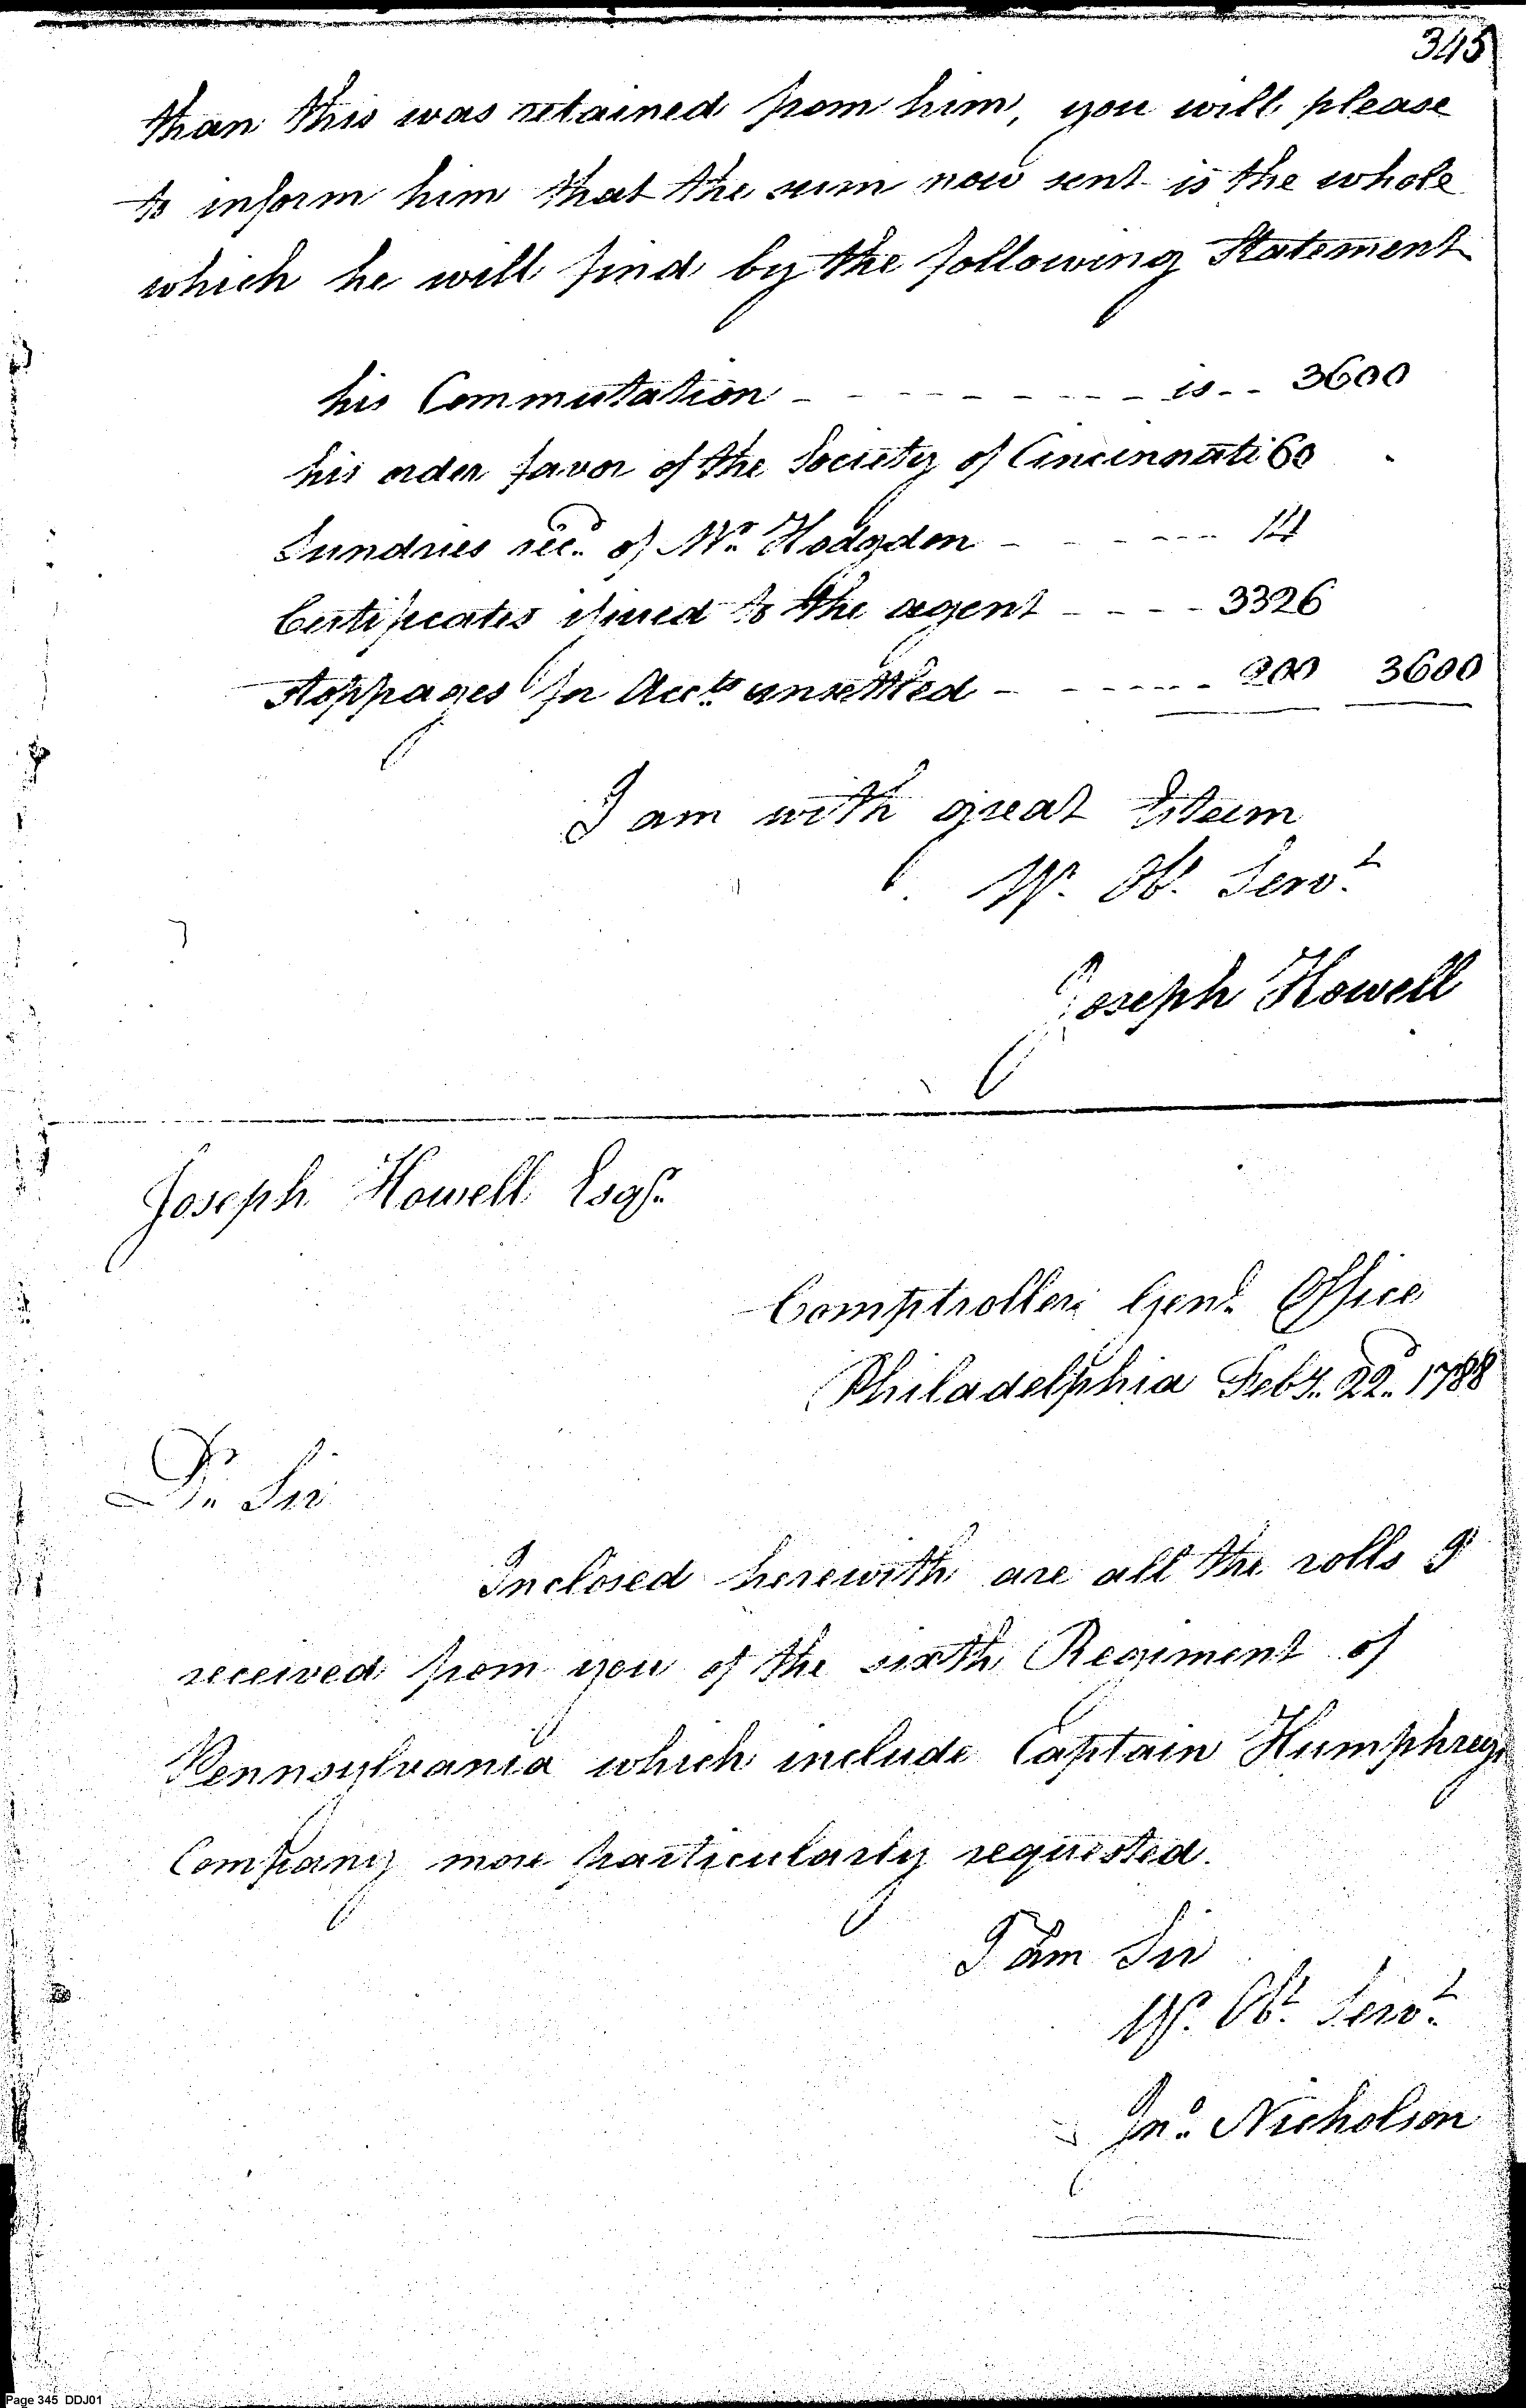 345
than this was retained from him, you will please
to inform him that the sum now sent is the whole
which he will find by the following Statement
his Commutation - - - - - - - - - is - - 3600
his order favor of the Society of Cincinnati 60
Sundries rec.d of Mr. Hodgdon - - - - - - 14
Certificates issued to the agent - - - - 3326
stoppages for Acc.ts unsettled - - - - - - 200 3600
I am with great Esteem
Yr. Ob. Serv.t
Joseph Howell
Joseph Howell Esqr.
Comptroller Gen.l Office
Philadelphia Feby. 22.d 1788
Dr. Sir
Inclosed herewith are all the rolls I
received from you of the sixth Regiment of
Pennsylvania which include Captain Humphreys
Company more particularly requested.
I am Sir
Yr. Ob.t Serv.t
Jn.o Nicholson
Page 345 DDJ01